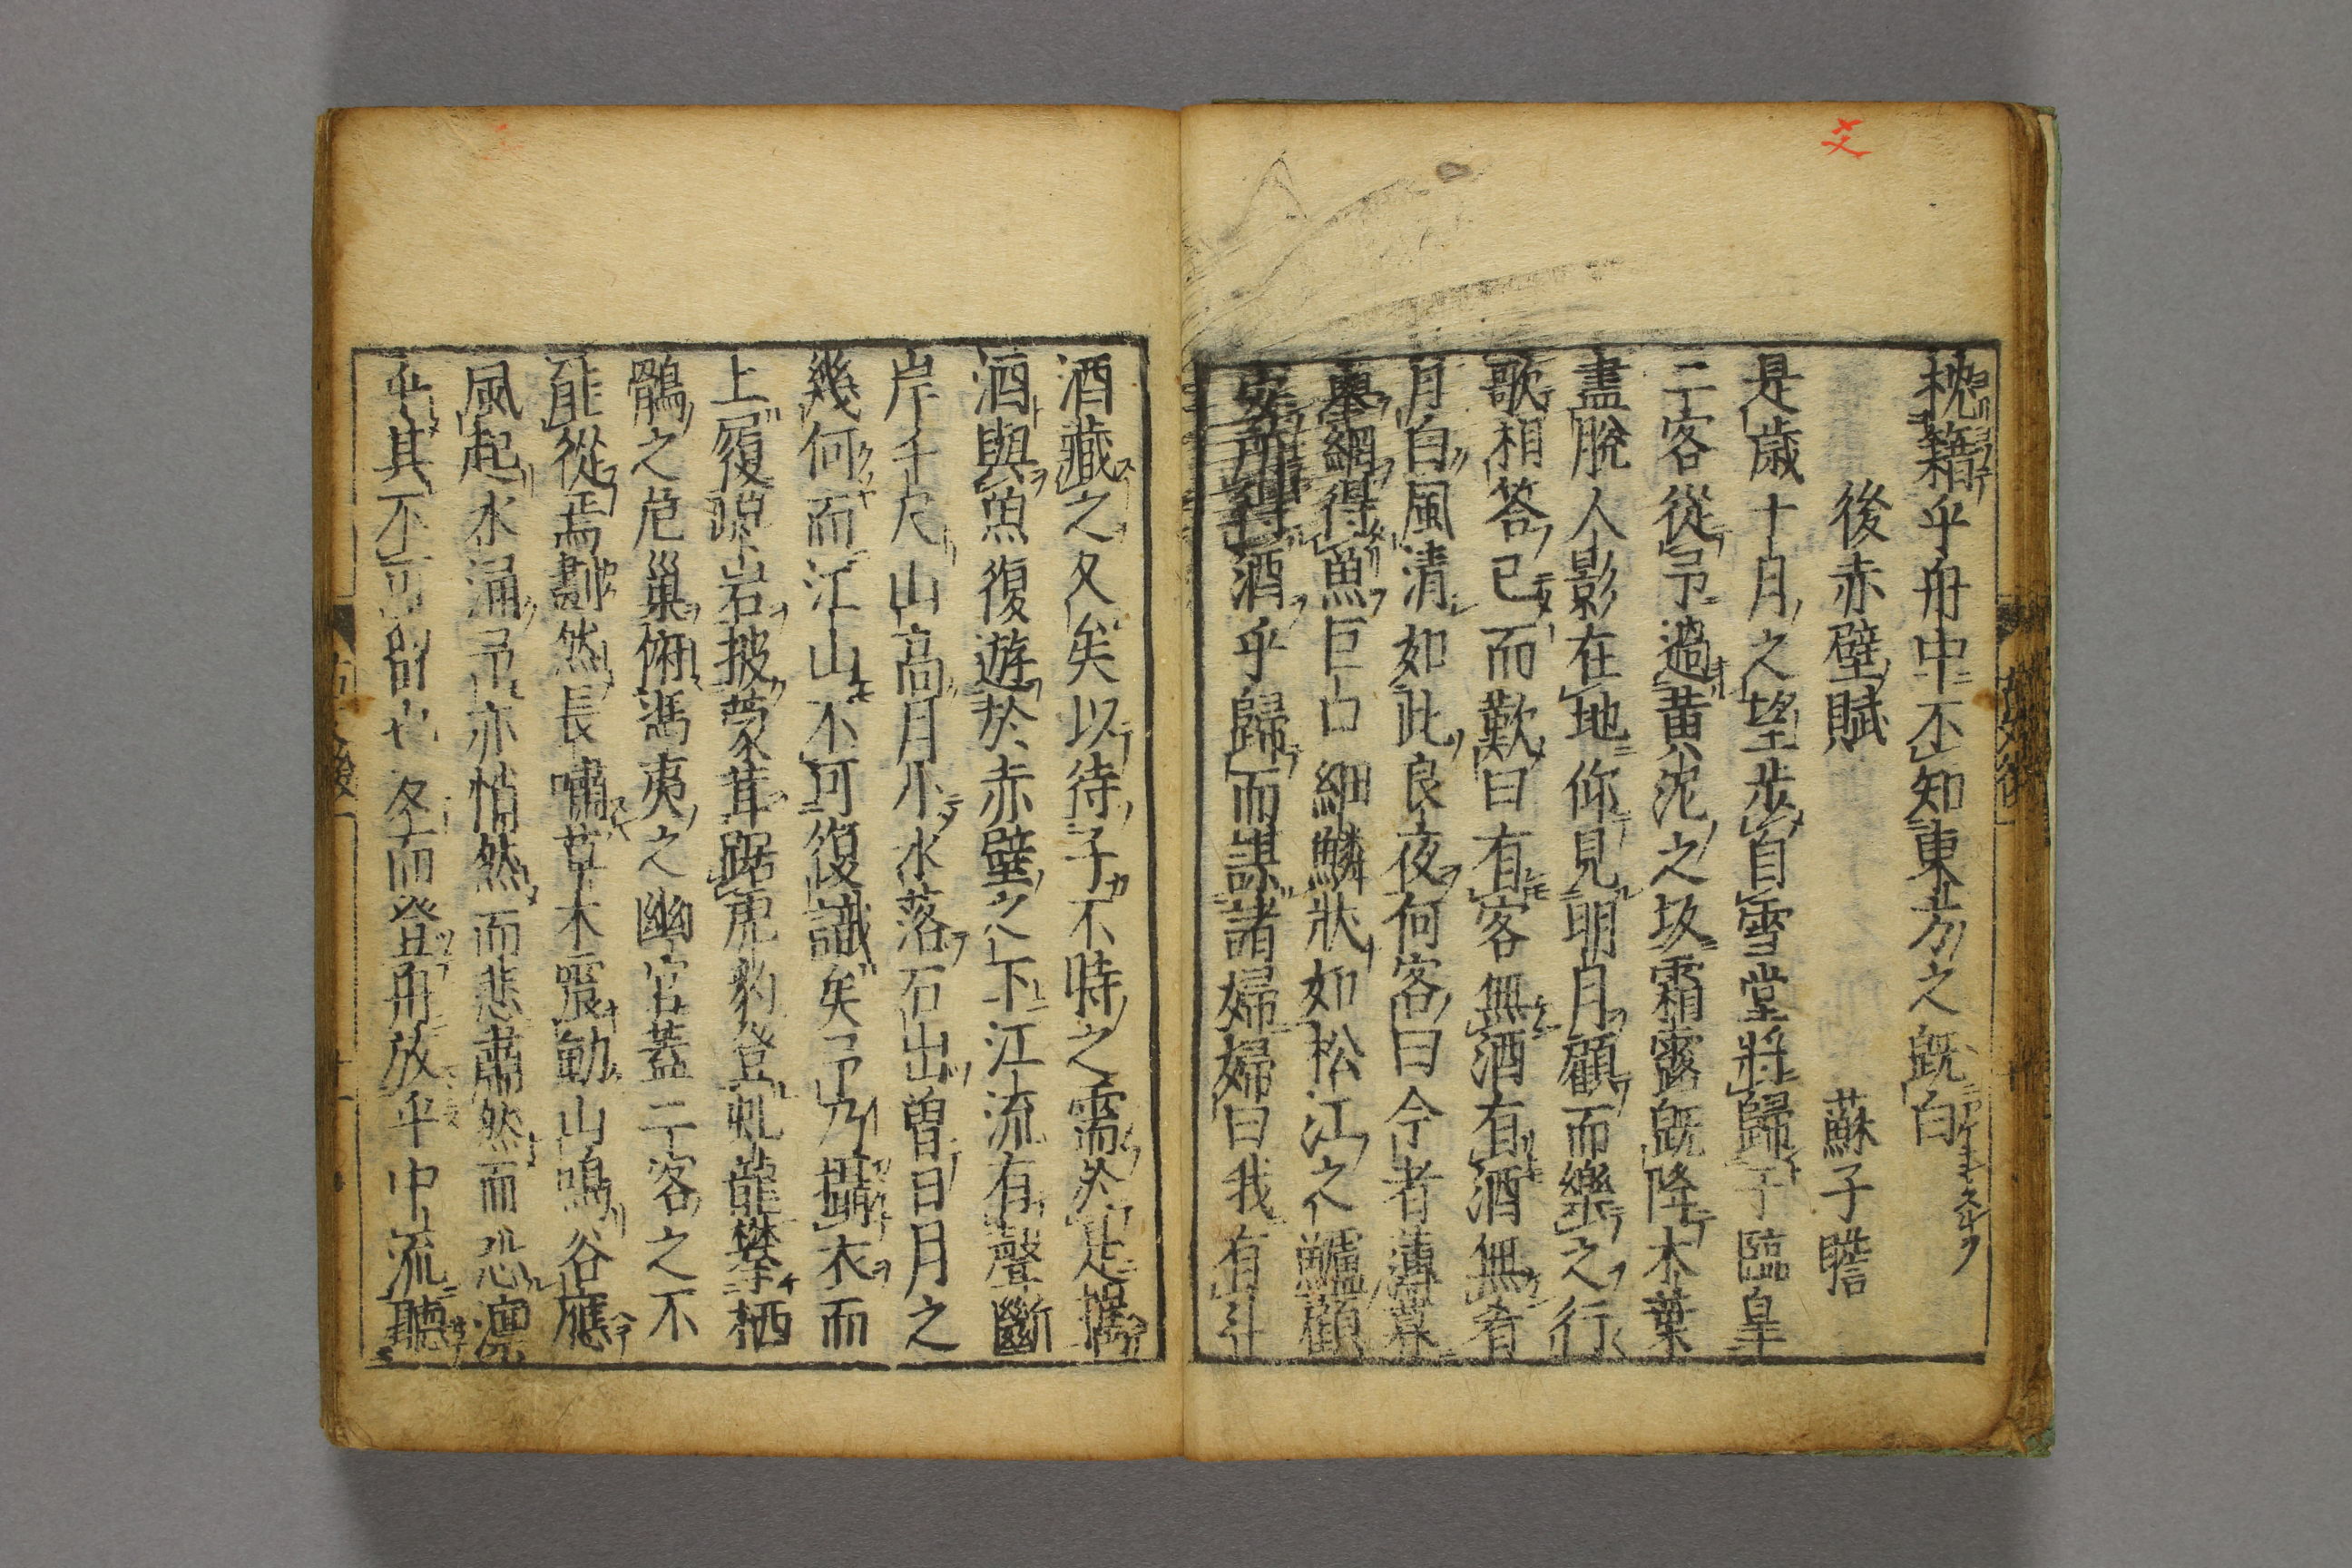 枕籍乎舟中不知東方之既白
後赤壁賦 蘇子瞻
是歳十月之望歩自雪堂将歸于臨皐
二客從予過黄泥之坂霜露既降木葉
盡脫人影在地仰見明月顧而樂之行
歌相答已而歎曰有客無酒有酒無肴
月白風清如此良夜何客曰今者薄暮
擧網得魚巨口細鱗狀如松江之鱸顧
安所得酒乎歸而謀諸婦婦曰我有斗
酒藏之久矣以待子不時之需於是携
酒與魚復遊於赤壁之下江流有聲斷
岸千尺山高月小水落石出曽日月之
幾何而江山不可復識矣予乃攝衣而
上履巉岩披蒙茸踞虎豹登虬龍攀栖
鶻之危巢俯馮夷之幽宮蓋二客之不
能從焉劃然長嘯草木震動山鳴谷應
風起水涌予亦悄然而悲肅然而恐凛
乎其不可留也反而登舟放乎中流聽